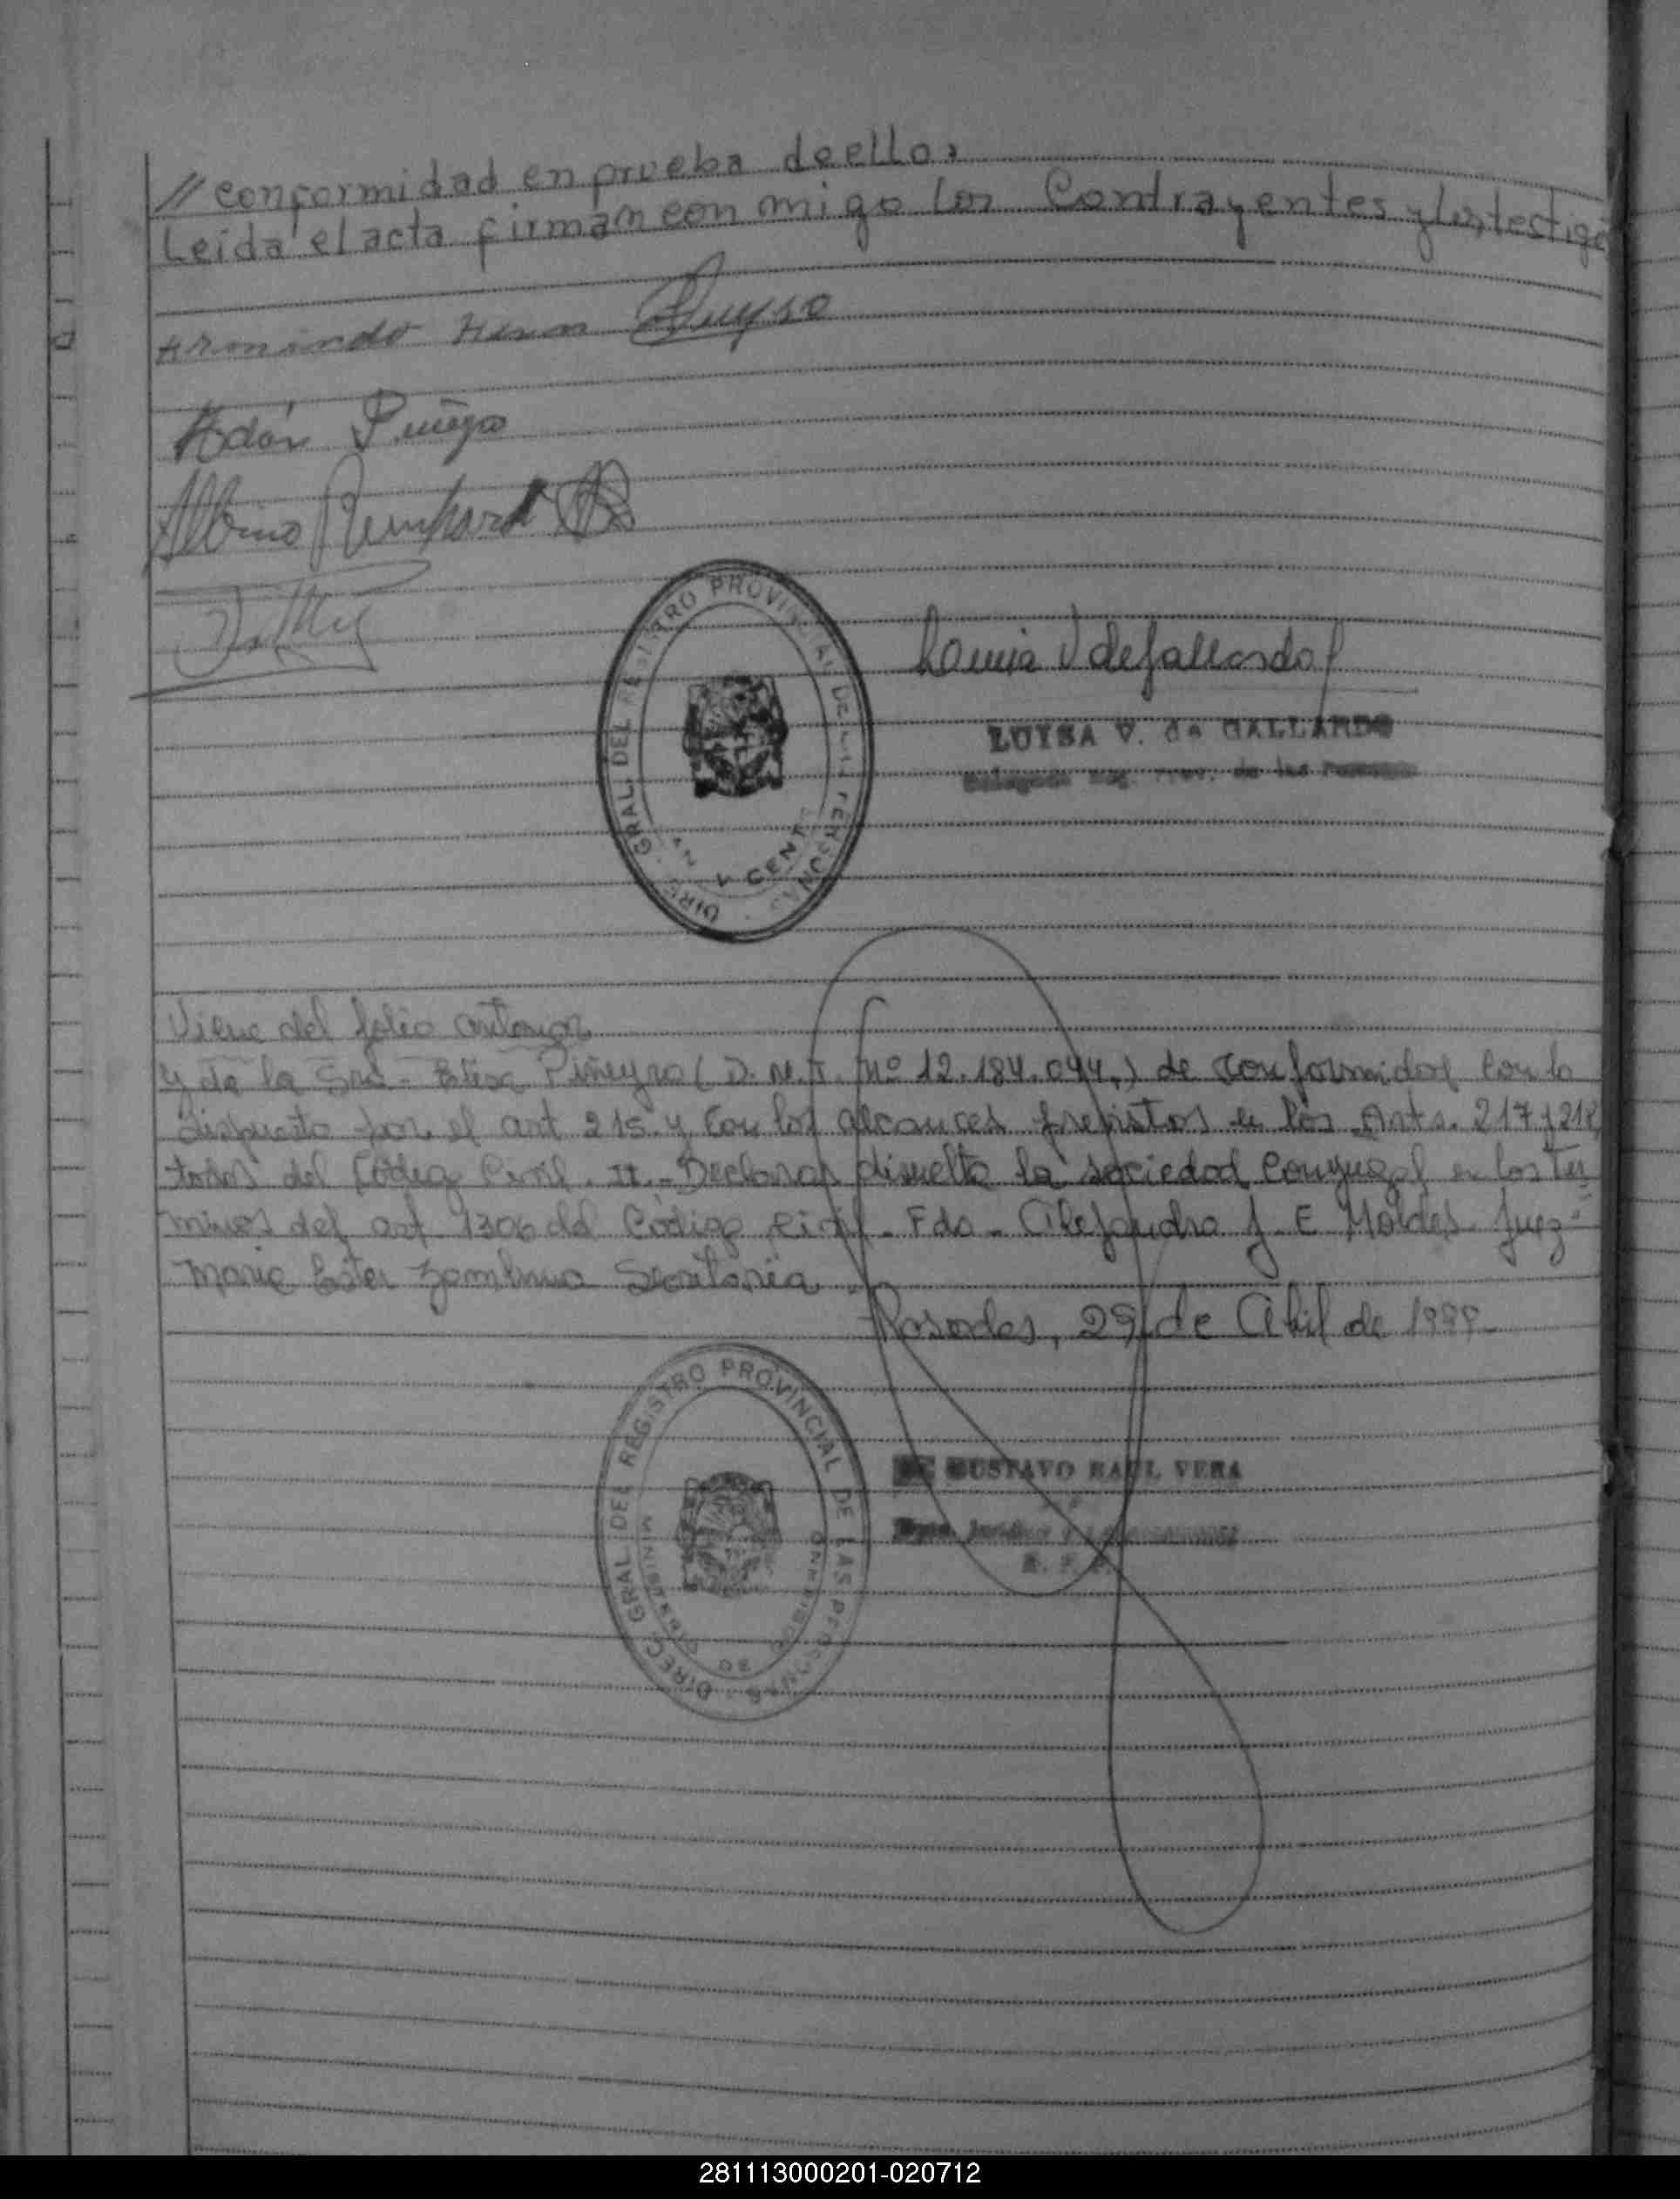 // conformidad en prueba de ello,
Leida el acta firman con migo los Contrayentes y los testigo
Armando
Adán Piñeyro
Albino Reinhardt
Luisa V de Gallardo
LUISA V. de GALLARDO
Delegada Reg. Prov. de las Personas
DIREC. GRAL. DEL REGISTRO PROVINCIAL DE LAS PERSONAS
Viene del folio anterior
y de la Sra. Elisa Piñeyro (D.N.I. Nº 12.184.044.) de conformidad con lo
dispuesto por el art 215 y con los alcances previstos en los Arts. 217 y 218,
todos del Código Civil. II.- Declarar disuelta la sociedad conyugal en los tér
minos del art 1306 del Código Civil - Fdo - Alejandro J. E Moldes - Juez -
Maria Ester Secretaria -
Posadas, 29 de Abril de
GUSTAVO RAUL VERA
R. P. P.
DIREC. GRAL. DEL REGISTRO PROVINCIAL DE LAS PERSONAS
MINISTERIO DE GOBIERNO
281113000201-020712